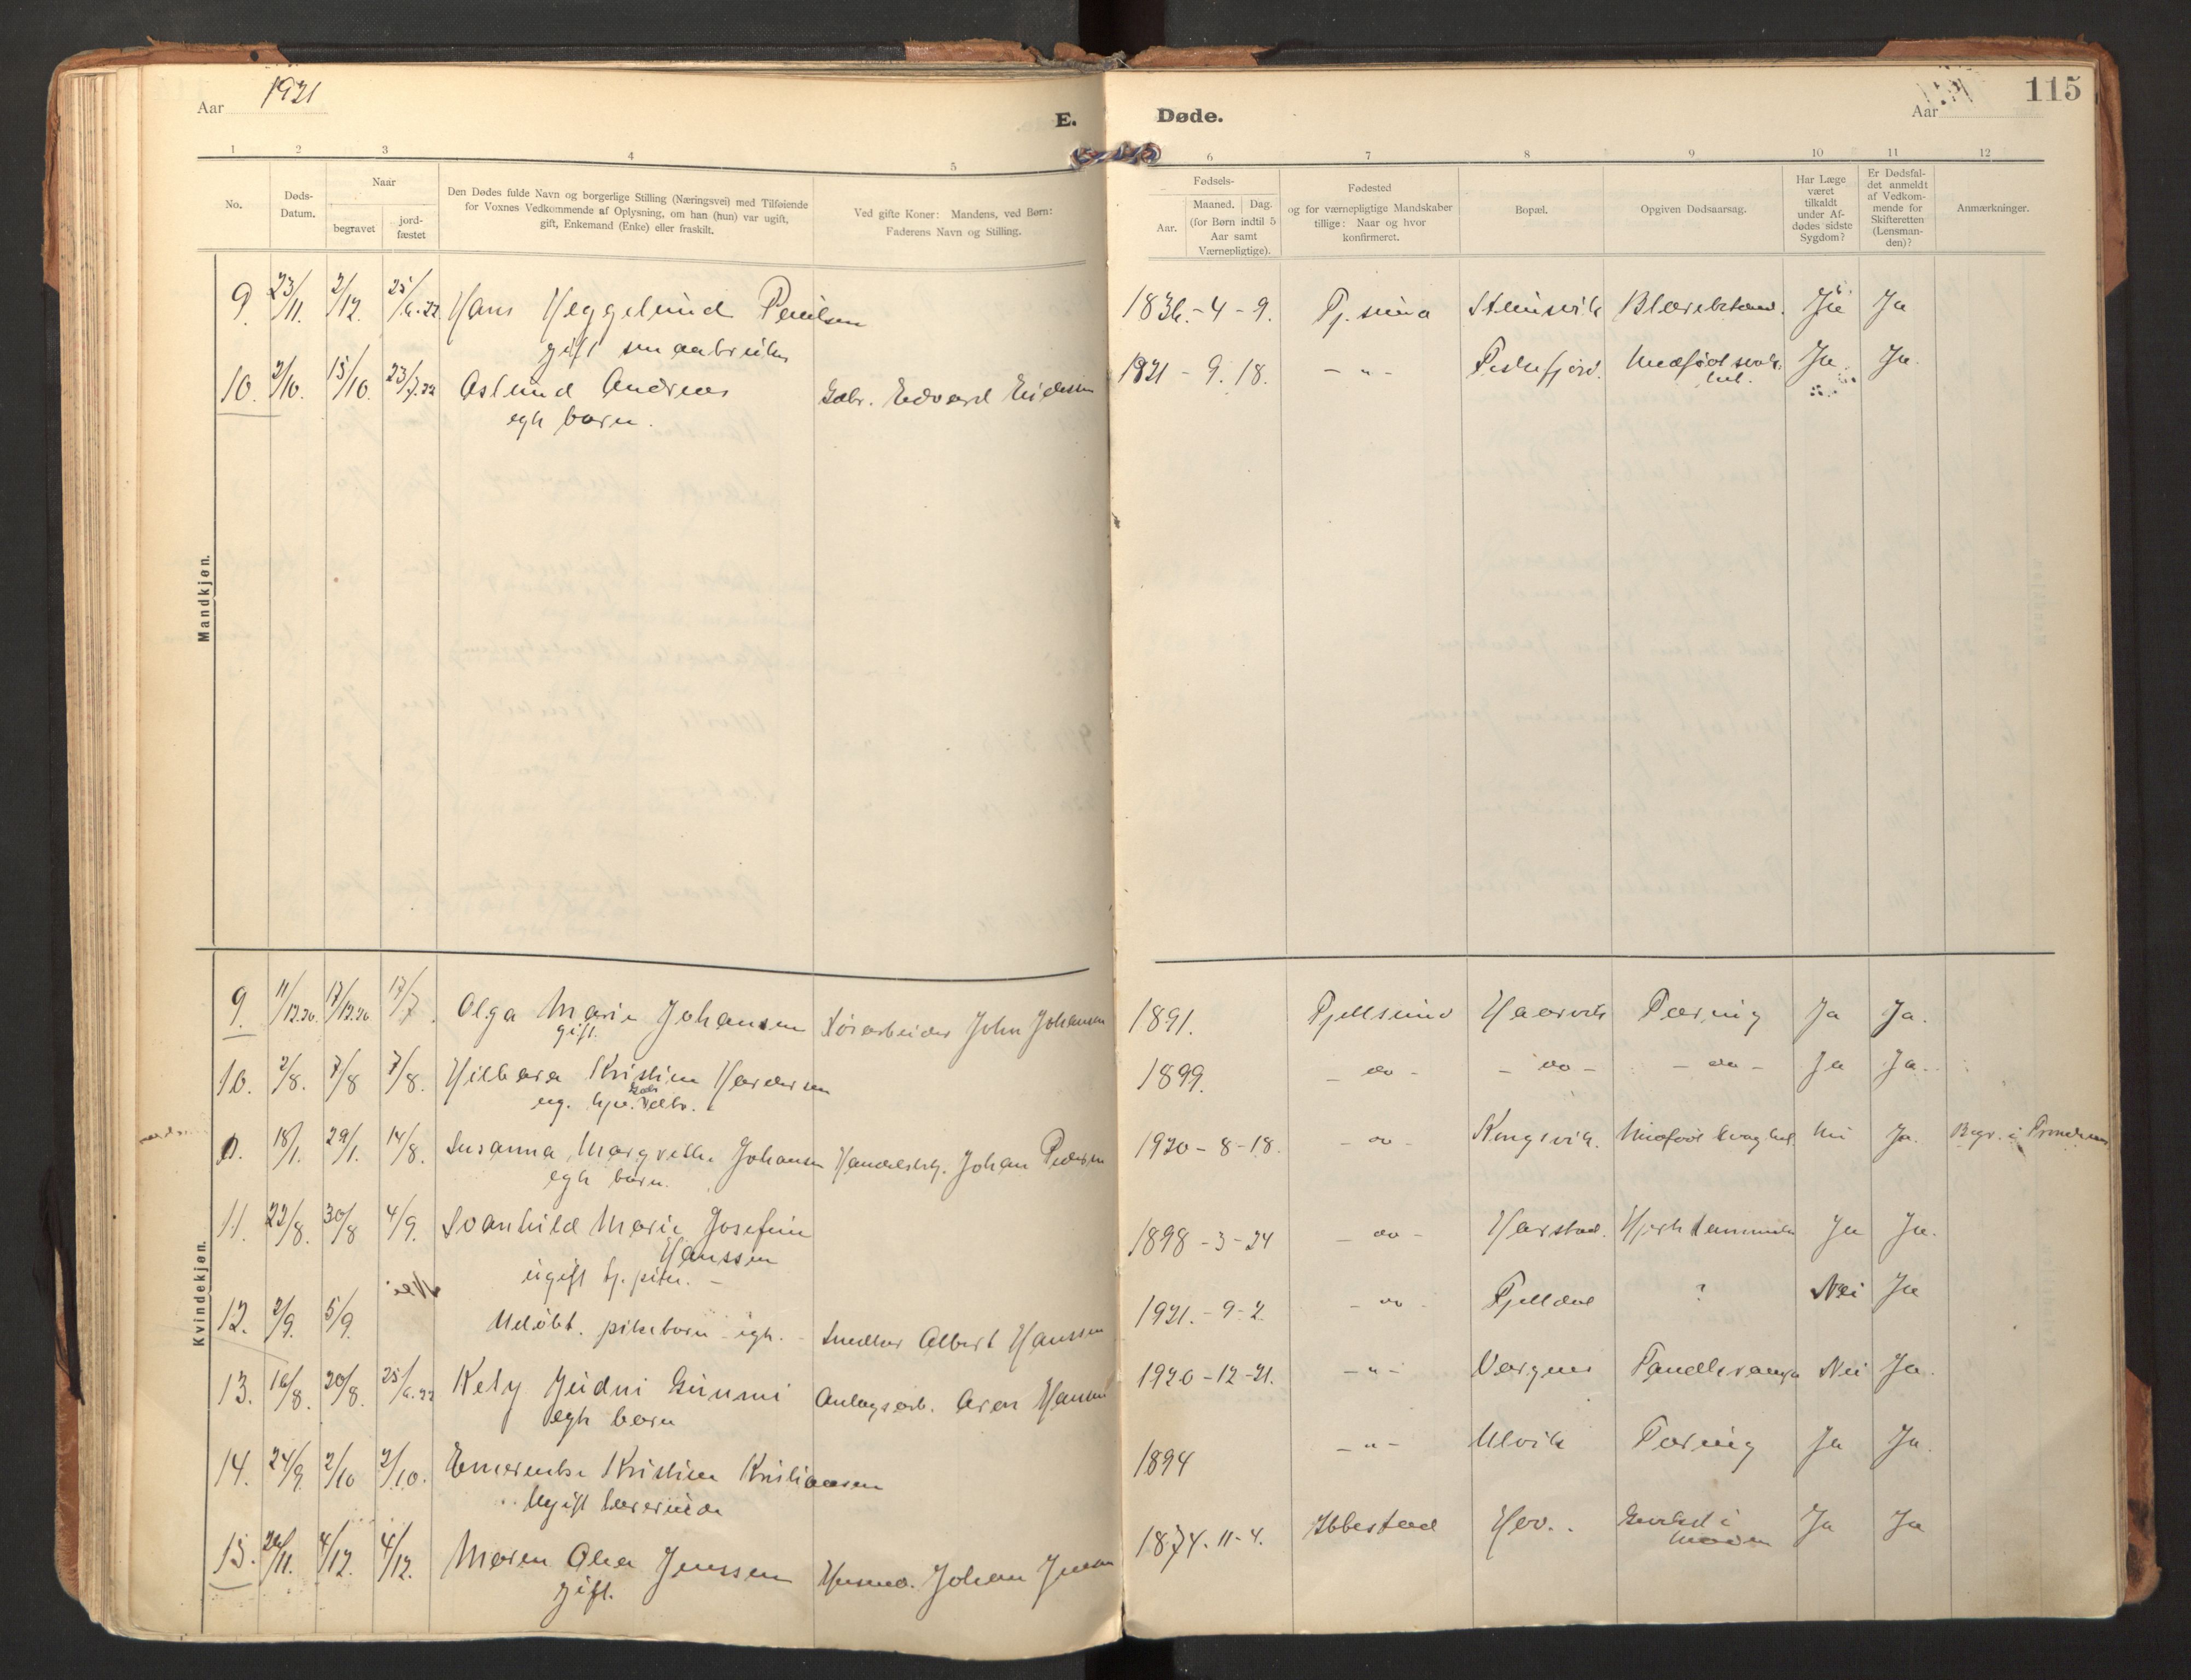 Aar 1921
E. Døde.
Aar
115
1 2 3 4 5 6 7 8 9 10 11 12
No.
Døds-
Datum.
Naar
begravet
jord-
fæstet
Den Dødes fulde Navn og borgerlige Stilling (Næringsvei) med Tilføiende
for Voxnes Vedkommende af Oplysning, om han (hun) var ugift,
gift, Enkemand (Enke) eller fraskilt.
Ved gifte Koner: Mandens, ved Børn:
Faderens Navn og Stilling.
Fødsels-
Aar.
Maaned. Dag.
(for Børn indtil 5
Aar samt
Værnepligtige).
Fødested
og for værnepligtige Mandskaber
tillige: Naar og hvor
konfirmeret.
Bopæl.
Opgiven Dødsaarsag.
Har Læge
været
tilkaldt
under Af-
dødes sidste
Sygdom?
Er Dødsfal-
det anmeldt
af Vedkom-
mende for
Skifteretten
(Lensman-
den)?
Anmærkninger.
Mandkjøn.
9. 23/11. 2/12. 25/6.22 Hans Heggelund Paulsen 1836.-4-9. Fj. sund Steinsvik Ja Ja
gift smaabruker
10. 2/10. 15/10. 23/7.22 Aslund Andreas Gbr. Edvard Eidissen 1921-9.18. -"- Fiskefjord. Medfødt svak- Ja. Ja.
egte barn. het.
Kvindekjøn.
9. 11/12.20. 17/12.20 17/7. Olga Marie Johansen Johan Johansen 1891. Fjellsund Haarvik Tæring Ja Ja.
gift.
10. 2/8. 7/8 7/8. Hilbora Kristine Hardersen 1899. -do- -do- -do- Ja Ja.
ug.
18/1. 29/1. 14/8. Susanna Margrethe Johansen Handelsbtj. Johan Pedersen 1920-8-18. -do- Kongsvik. Medfødt svaghet Nei Ja. Begr. i Trondenes
egte barn.
11. 22/8. 30/8 4/9. Svanhild Marie Josefine 1898-3-24 -do- Harstad. Ja Ja.
Hanssen
ugift tj. pike.-
12. 2/9. 5/9. Nei Udøbt. pikebarn egte.- Snedker Albert Hanssen 1921.-9-2. -do- Fjelldal ? Nei Ja
13. 16/8. 20/8. 25/6.22 Kety Judni Gunni Anlegsarb. Aron Hansen 1920-12-21. -"- Nei Ja.
egte barn
14. 24/9. 2/10 2/10. Emerentse Kristine Kristiansen 1894 -"- Ulvik Tæring Ja Ja.
Ugift lærerinde
15. 26/11. 4/12. 4/12. Maren Olea Jenssen Husmd. Johan Jenssen 1874.11-4. Ibbestad Hov. Ja Ja
gift.